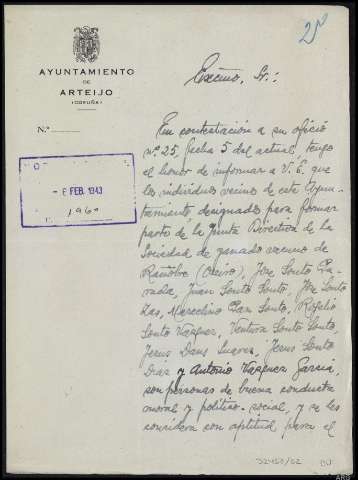 25
AYUNTAMIENTO
DE
ARTEIJO
(CORUÑA)
Excmo. Sr.:
N.º
En contestación a su oficio
nº 25, fecha 5 del actual, tengo
el honor de informar a V. E. que
los individuos vecinos de este Ayun-
tamiento, designados para formar
parte de la Junta Directiva de la
Sociedad de ganado vacuno de
- 8 FEB. 1943
196
José Souto
Juan Souto Souto, José Souto
Zas, Marcelino Souto, Rogelio
Souto Vazquez, Ventura Souto Souto,
Jesus Dans Suarez, Jesus Souto
Diaz y Antonio Vazquez Garcia,
son personas de buena conducta
moral y politico-social, y se les
considera con aptitud para el